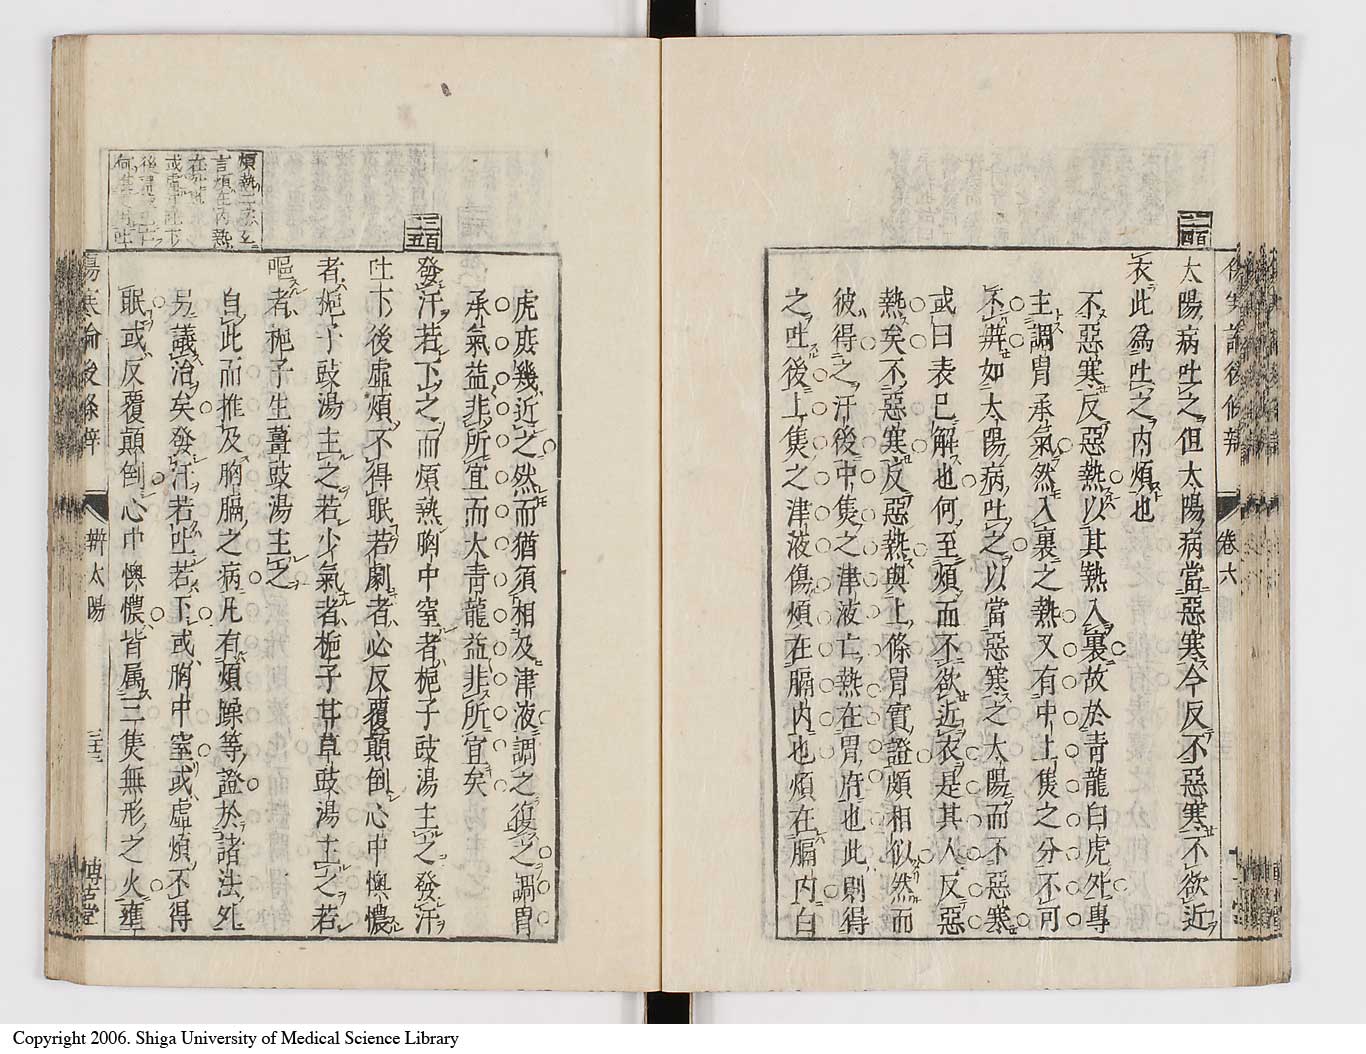 百二四
太陽病吐之但太陽病當惡寒今反不惡寒不欲近
衣此爲吐之内煩也
不惡寒反惡熱以其熱入裏故於青龍白虎外專
主調胃承氣然入裏之熱又有中上焦之分不可
不辨如太陽病吐之以當惡寒之太陽而不惡寒
或曰表已解也何至煩而不欲近衣是其人反惡
熱矣不惡寒反惡熱與上條胃實證頗相似然而
彼得之汗後中焦之津液亡熱在胃府也此則得
之吐後上焦之津液傷煩在膈内也煩在膈内白
卷六
虎庶幾近之然而猶須相及津液調之復之調胃
承氣益非所宜而大青龍益非所宜矣
百二五
發汗若下之而煩熱胸中窒者梔子豉湯主之發汗
吐下後虛煩不得眠若劇者必反覆顛倒心中懊憹
者梔子豉湯主之若少氣者梔子甘草豉湯主之若
嘔者梔子生薑豉湯主之
自此而推及胸膈之病凡有煩躁等證於諸法外
另議治矣發汗若吐若下或胸中窒或虛煩不得
眠或反覆顛倒心中懊憹皆属三焦無形之火壅
煩熱二字
言煩在内熱
在
傷寒論後條辨 辨太陽 三十三 博古堂
Copyright 2006. Shiga University of Medical Science Library